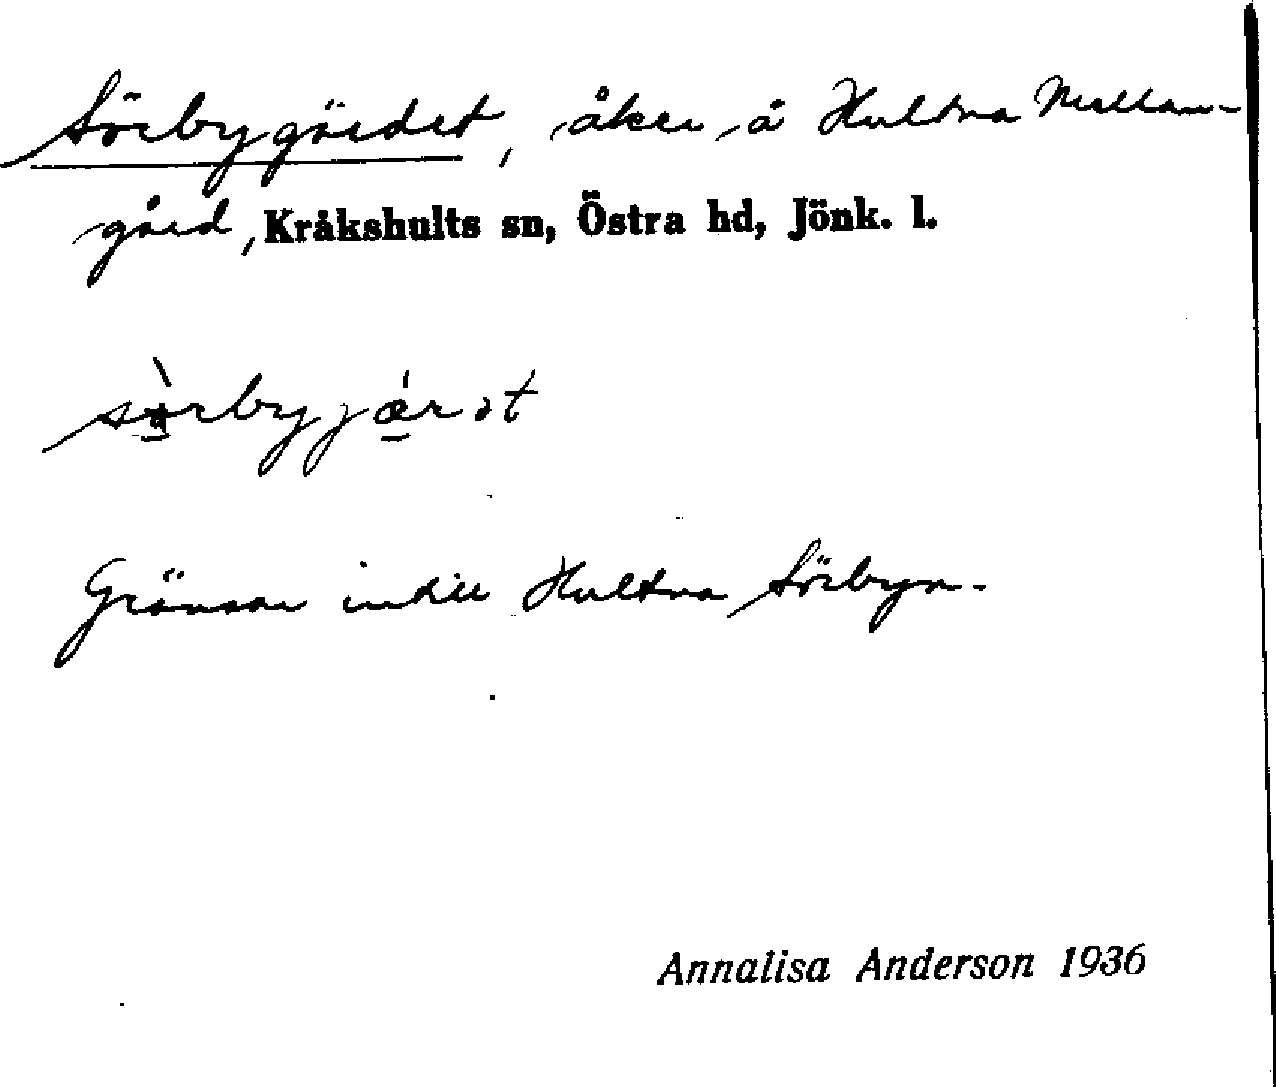 Sörbygärdet, åker å Hultna Mellan-
gård, Kråkshults sn, Östra hd, Jönk. l.
Gränsar intill Hultna Sörbyn.
Annalisa Anderson 1936